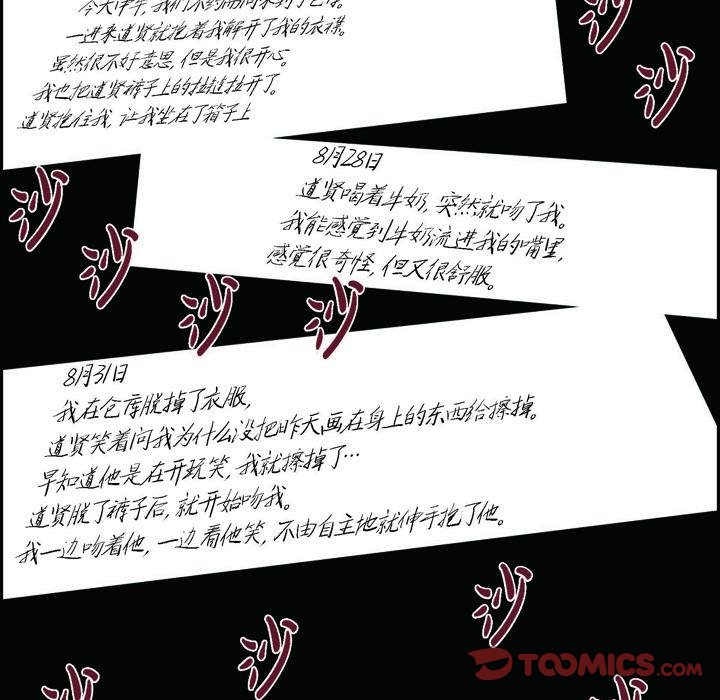 一进来道贤就抱着我解开了我的衣襟。
虽然很不好意思,但是我很开心。
我也把道贤裤子上的拉链拉开了。
道贤抱住我,让我坐在了箱子上
8月28日
道贤喝着牛奶,突然就吻了我。
我能感觉到牛奶流进我的嘴里,
感觉很奇怪,但又很舒服。
8月31日
我在仓库脱掉了衣服,
道贤笑着问我为什么没把昨天画在身上的东西给擦掉。
早知道他是在开玩笑,我就擦掉了…
道贤脱了裤子后,就开始吻我。
我一边吻着他,一边看他笑,不由自主地就伸手抱了他。
沙
沙
沙
沙
沙
沙
沙
沙
TOOMICS.COM